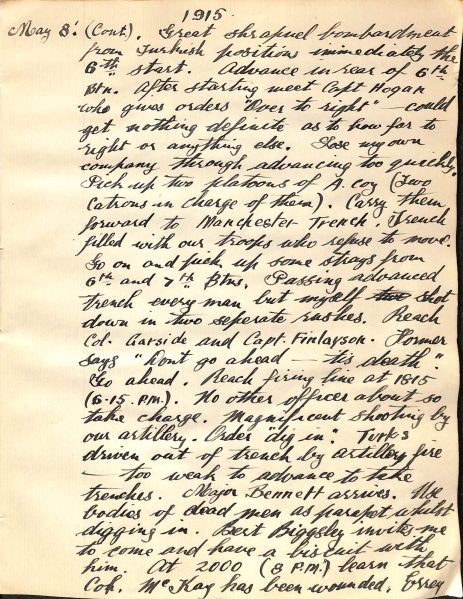 1915.
May 8. (Cont). Great shrapnel bombardment
from Turkish positions immediately the
6th start. Advance in rear of 6th
Btn. After starting meet Capt Hogan
who gives orders "Over to right" — could
get nothing definite as to how far to
right or anything else. Lose my own
company through advancing too quickly.
Pick up two platoons of A. coy (Two
Catrons in charge of them). Carry them
forward to Manchester Trench. Trench
filled with our troops who refuse to move.
Go on and pick up some strays from
6th and 7th Btns. Passing advanced
trench every man but myself two shot
down in two seperate rushes. Reach
Col. Garside and Capt. Finlayson. Former
says "Dont go ahead — tis death".
Go ahead. Reach firing line at 1815
(6-15 P.M.). No other officer about so
take charge. Magnificent shooting by
our artillery. Order "dig in". Turks
driven out of trench by artillery fire
— too weak to advance to take
trenches. Major Bennett arrives. Use
bodies of dead men as parapet whilst
digging in. Bert Biggsley invites me
to come and have a biscuit with
him. At 2000 (8 P.M.) learn that
Col. McKay has been wounded,